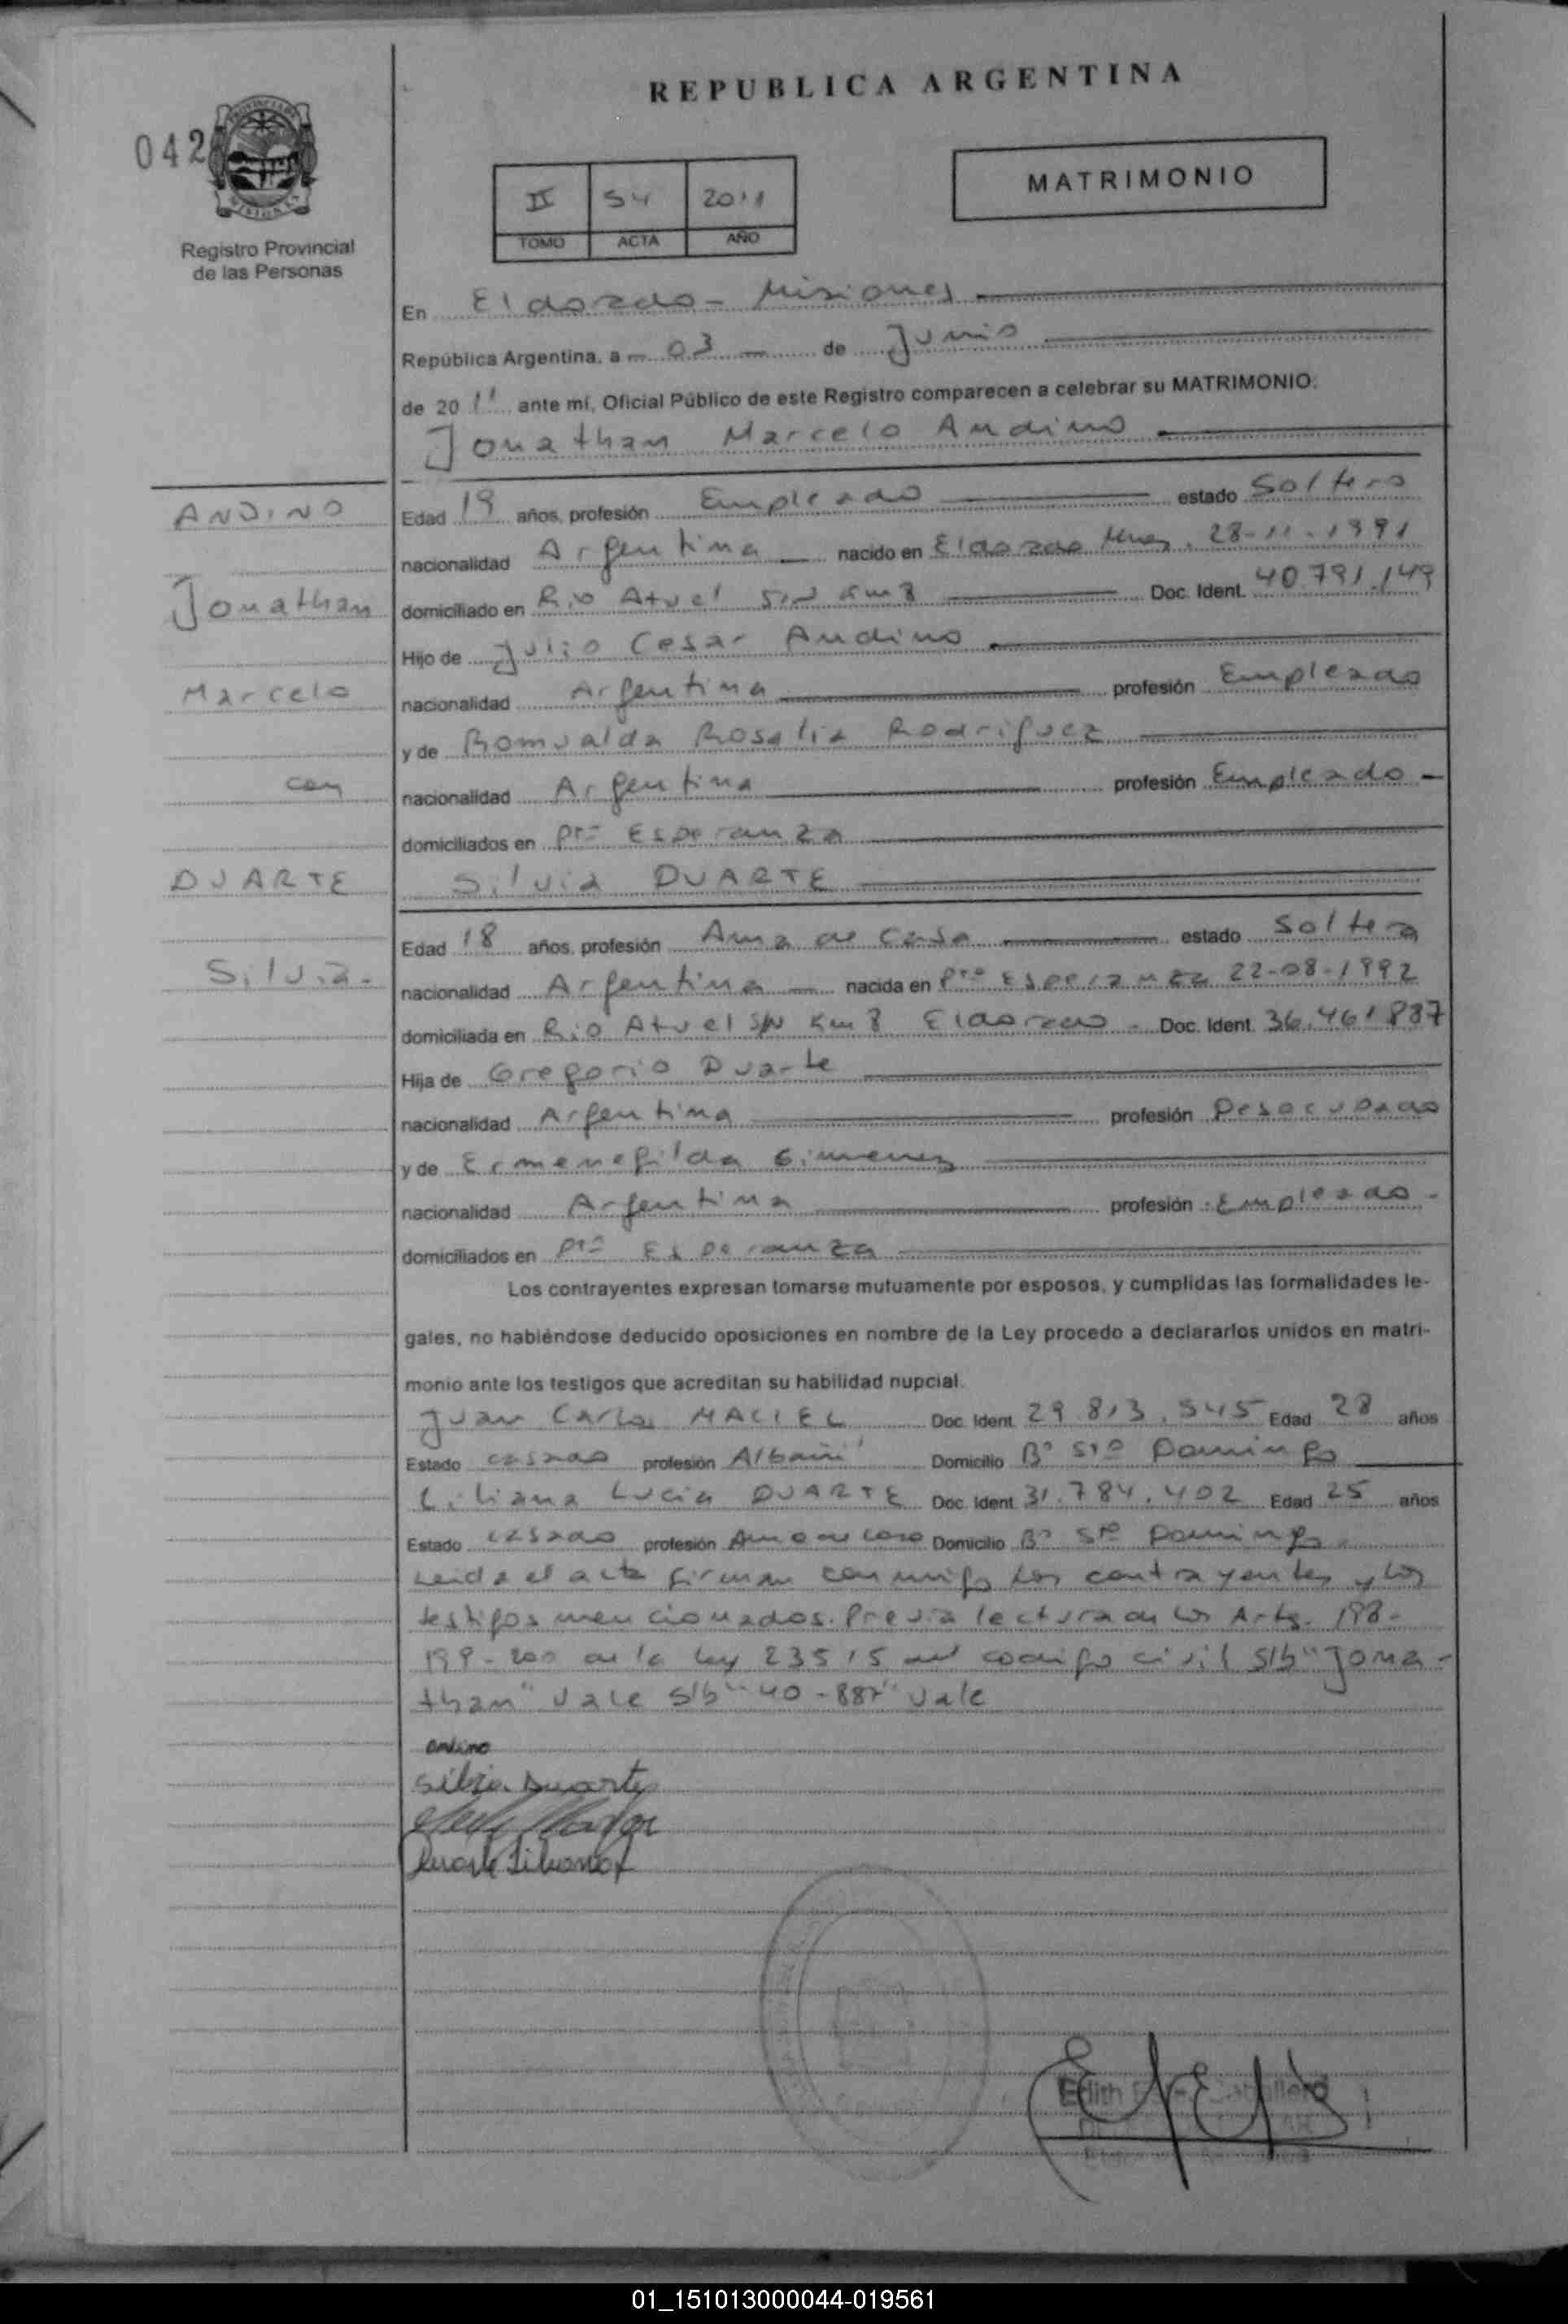 REPUBLICA ARGENTINA
042
MATRIMONIO
II 54 2011
TOMO ACTA AÑO
Registro Provincial
de las Personas
En Eldorado - Misiones
República Argentina, a 03 de Junio
de 20 11 ante mí, Oficial Público de este Registro comparecen a celebrar su MATRIMONIO:
Jonathan Marcelo Andino
ANDINO
Edad 19 años, profesión Empleado estado Soltero
nacionalidad Argentina nacido en Eldorado Mnes. 28-11-1991
Jonathan
domiciliado en Rio Atuel S/N Km 8 Doc. Ident. 40.791.149
Hijo de Julio Cesar Andino
Marcelo
nacionalidad Argentina profesión Empleado
y de Romualda Rosalia Rodriguez
con
nacionalidad Argentina profesión Empleado -
domiciliados en Pto Esperanza
DUARTE
Silvia DUARTE
Edad 18 años, profesión Ama de Casa estado Soltera
Silvia.
nacionalidad Argentina nacida en Pto Esperanza 22-08-1992
domiciliada en Rio Atuel S/N Km 8 Eldorado - Doc. Ident. 36.461887
Hija de Gregorio Duarte
nacionalidad Argentina profesión Desocupado
y de Ermenegilda Gimenez
nacionalidad Argentina profesión Empleado -
domiciliados en Pto Esperanza
Los contrayentes expresan tomarse mutuamente por esposos, y cumplidas las formalidades le-
gales, no habiéndose deducido oposiciones en nombre de la Ley procedo a declararlos unidos en matri-
monio ante los testigos que acreditan su habilidad nupcial.
Juan Carlos MACIEL Doc. Ident. 29.813.545 Edad 28 años
Estado casado profesión Albañil Domicilio Bº Sto Domingo
Liliana Lucia DUARTE Doc. Ident. 31.784.402 Edad 25 años
Estado casado profesión Ama de casa Domicilio Bº Sto Domingo
Leida el acta firman conmigo los contrayentes y los
testigos mencionados. Previa lectura de los Arts. 198-
199-200 de la ley 23515 del codigo civil S/b "Jona-
than" Vale S/b "40-887" Vale
Andino
Silvia Duarte
Duarte Liliana L
Edith Caballero
01_151013000044-019561